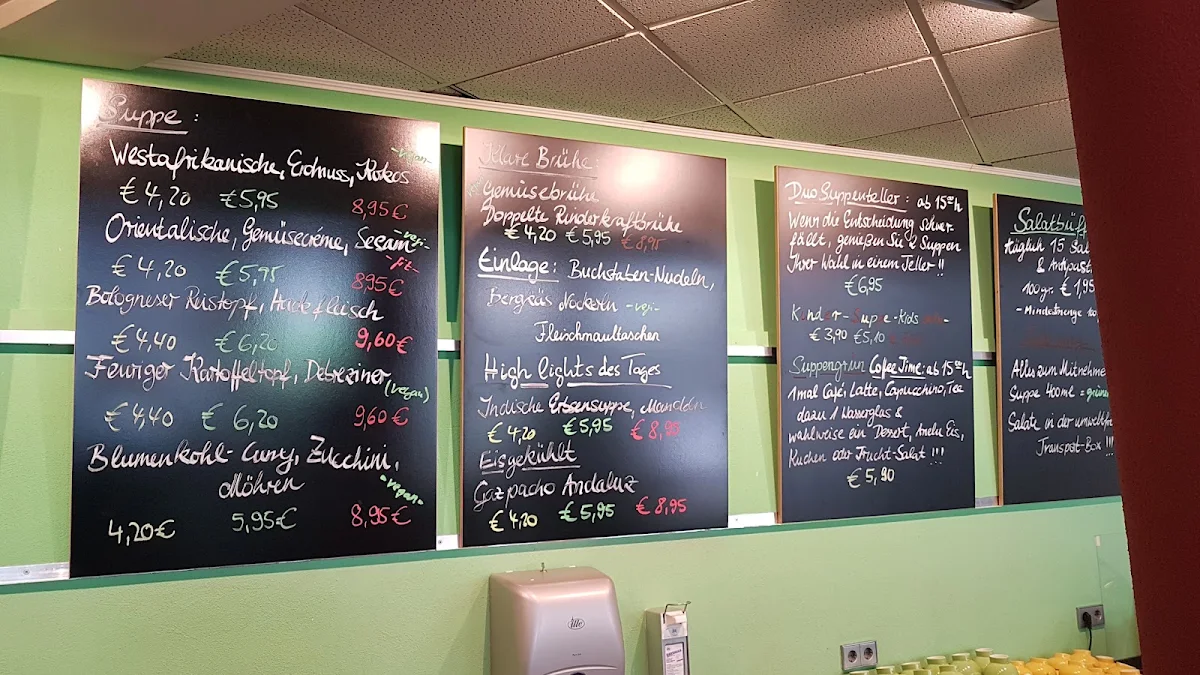 Suppe :
Westafrikanische, Erdnuss, Kokos
-vegan-
€ 4,20 €5,95 8,95€
Orientalische, Gemüsecréme, Sesam
-vegi-
-fit-
€ 4,20 €5,95 8,95€
Bologneser Reistopf, Hackfleisch
€ 4,40 € 6,20 9,60€
Feuriger Kartoffeltopf, Debreziner
(vegan)
€ 4,40 € 6,20 9,60€
Blumenkohl-Curry, Zucchini,
Möhren
-vegan-
4,20€ 5,95€ 8,95€
Klare Brühe:
Gemüsebrühe
Doppelte Rinderkraftbrühe
€ 4,20 €5,95 €8,95
Einlage: Buchstaben-Nudeln,
Bergkäs Nockerln -vegi-
Fleischmaultaschen
High lights des Tages
Indische Erbsensuppe, Mandeln
€ 4,20 €5,95 € 8,95
Eisgekühlt
Gazpacho Andaluz
€ 4,20 € 5,95 € 8,95
Duo Suppenteller : ab 15⁰⁰h
Wenn die Entscheidung schwer
fällt, genießen Sie 2 Suppen
Ihrer Wahl in einem Teller !!
€6,95
Kinder-Suppe-Kids
€ 3,90 €5,10
Suppengrün Coffee Time: ab 15⁰⁰h
1mal Café, Latte, Capucchino, Tee
dazu 1 Wasserglas &
wahlweise ein Dessert, Eis,
Kuchen oder Frucht-Salat !!!
€ 5,90
Salatbüff
täglich 15 Sal
& Antipast
100gr. € 1,95
- Mindestmenge 10
Alles zum Mitnehme
Suppe 400ml =
Salate in der umweltfr
Transport-Box !!!
ille